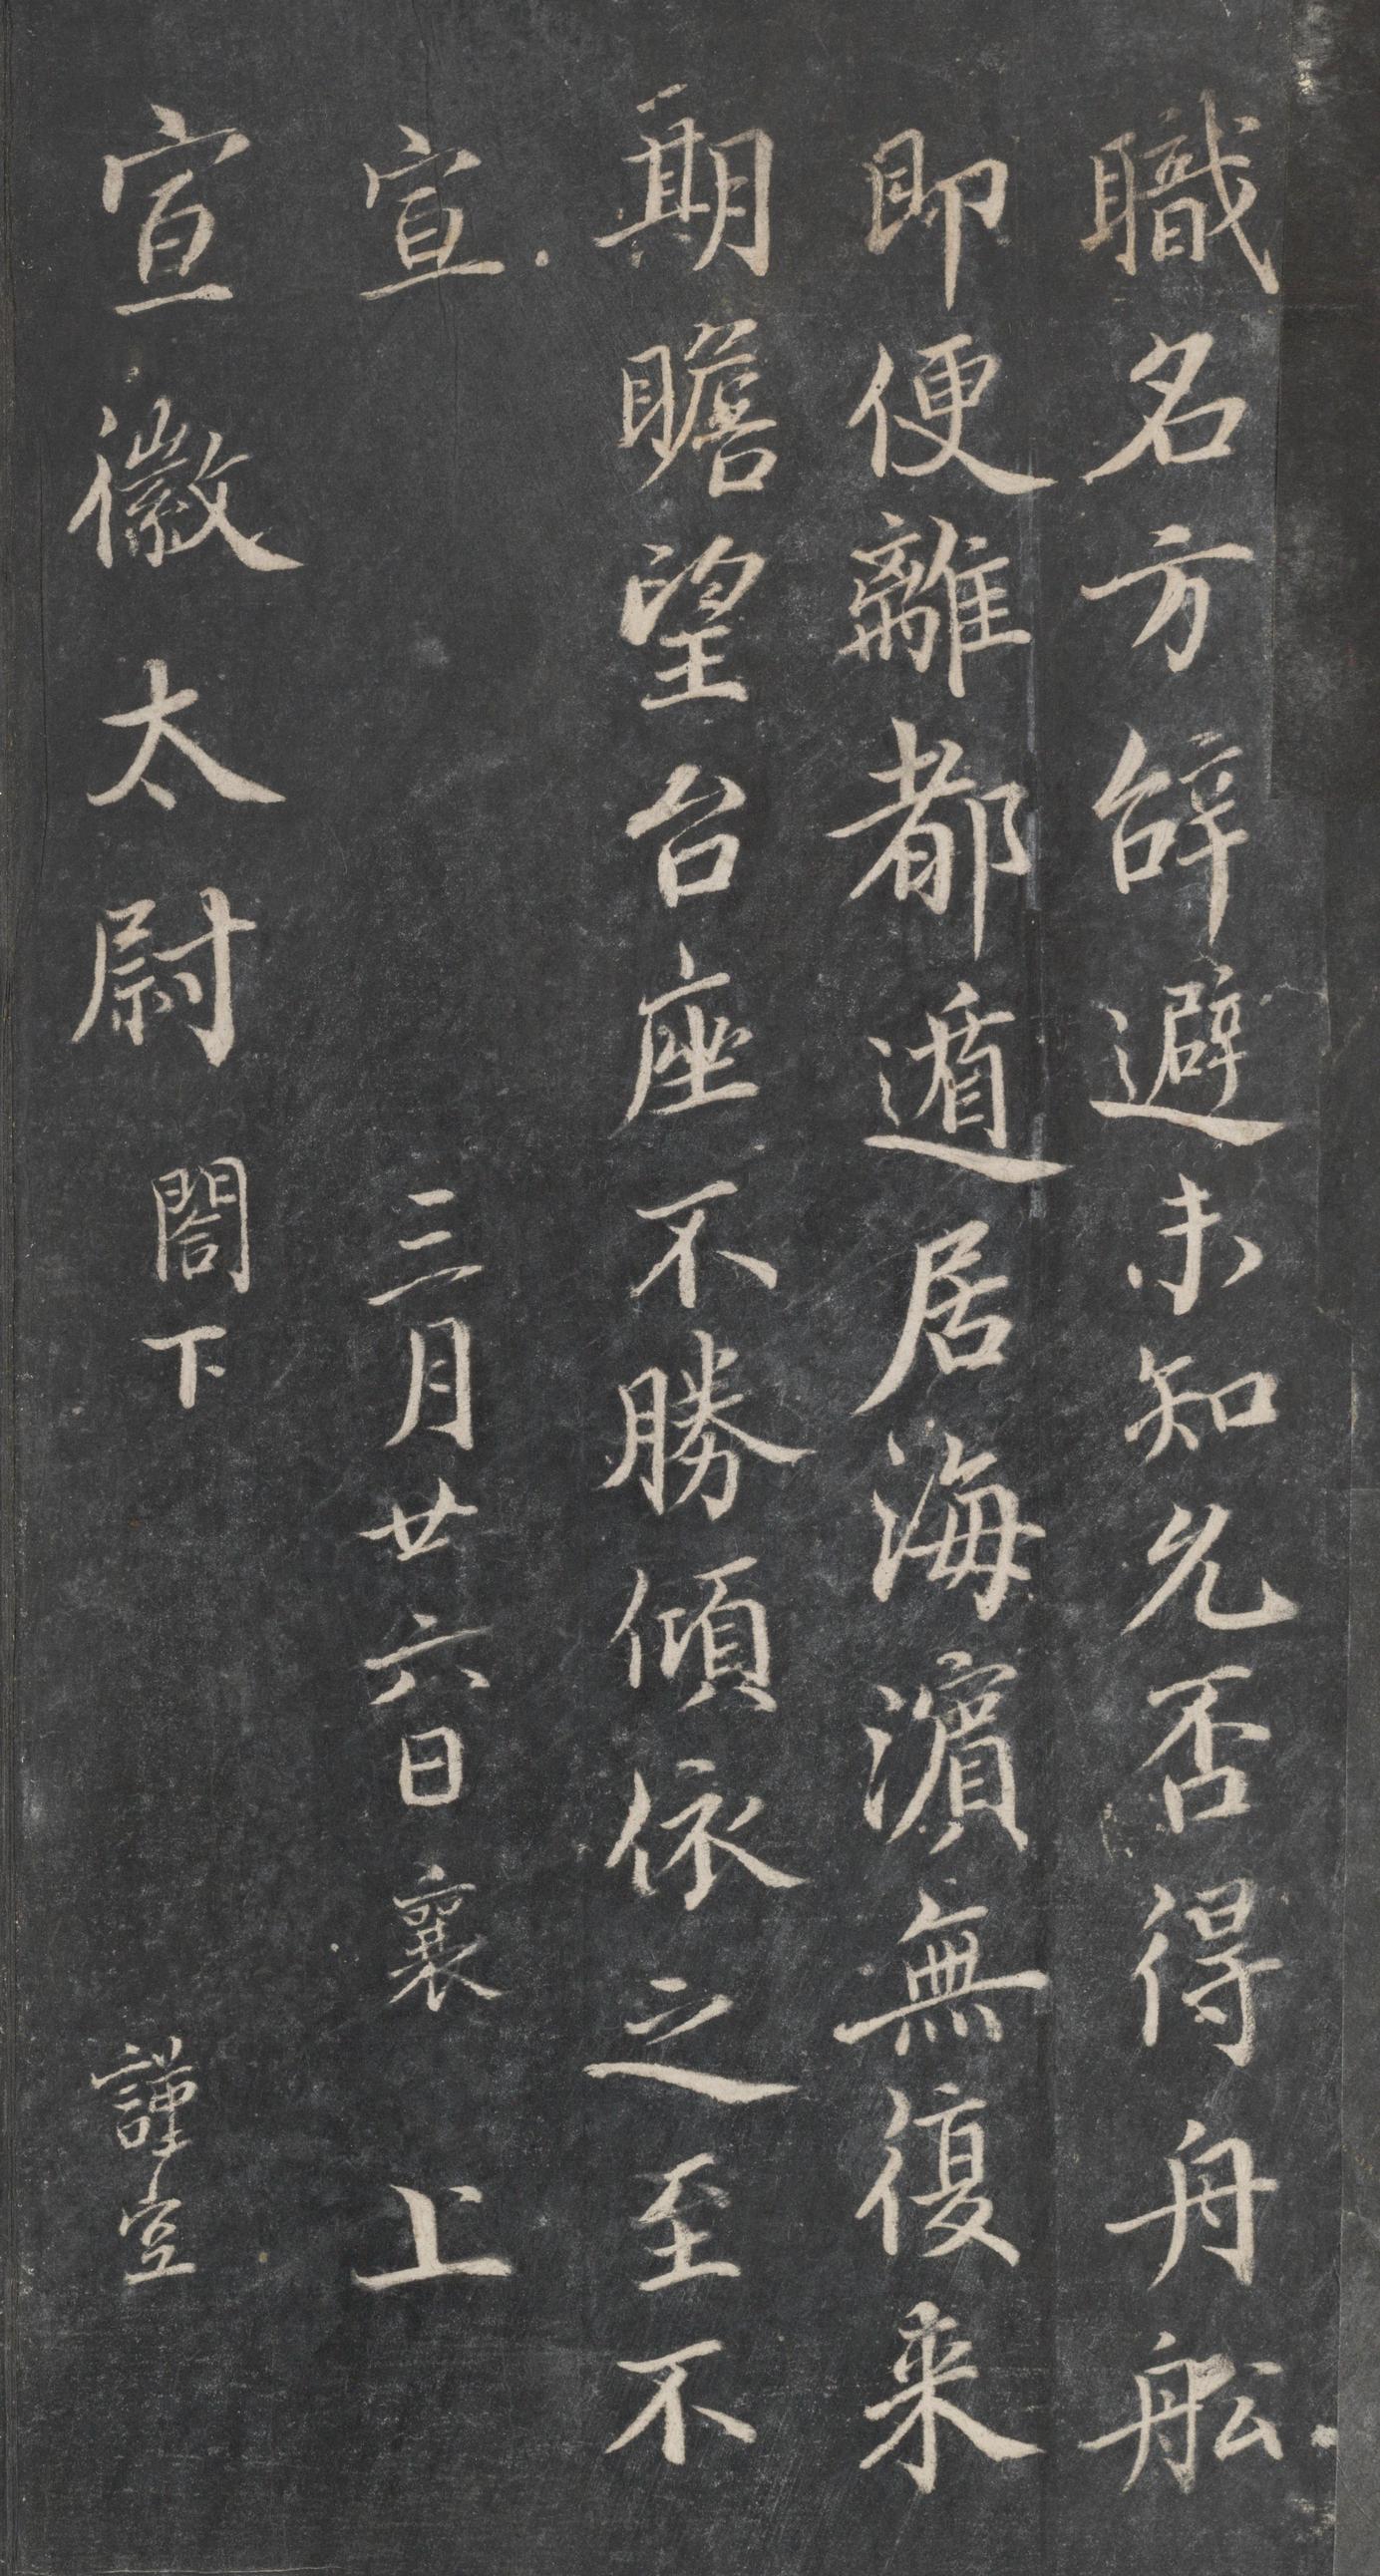 職名方辝避未知允否得舟舩
即便離都遁居海濵無復来
期瞻望台座不勝傾依之至不
宣　三月廿六日襄　上
宣徽太尉　閤下　謹空